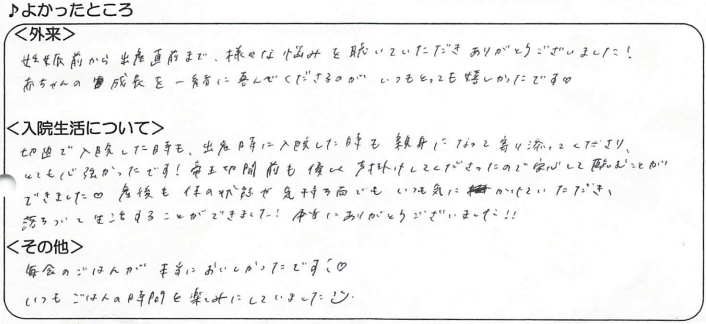 ♪よかったところ
＜外来＞
妊娠前から出産直前まで、様々な悩みを聴いていただきありがとうございました！
赤ちゃんの成長を一緒に喜んでくださるのがいつもとっても嬉しかったです♡
＜入院生活について＞
切迫で入院した時も、出産時に入院した時も親身になって寄り添ってくださり、
とても心強かったです！帝王切開前も優しく声掛けしてくださったので安心して臨むことが
できました♡ 産後も体の状態や気持ち面でもいつも気にかけていただき、
落ちついて生活することができました！本当にありがとうございました!!
＜その他＞
毎食のごはんが本当においしかったです♡
いつもごはんの時間を楽しみにしていました